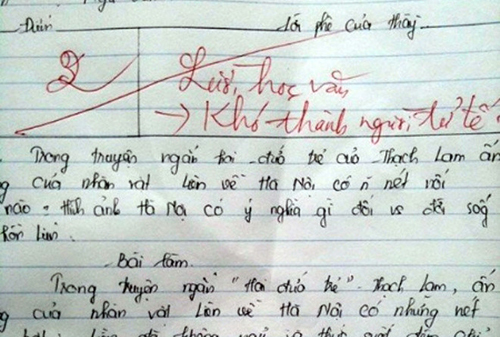 Điểm Lời phê của thầy
2 Lười học văn
→ Khó thành người tử tế
Trong truyện ngắn hai đứa trẻ của Thạch Lam ấn
g của nhân vật Liên về Hà Nội có nét nổi
nào. Hình ảnh Hà Nội có ý nghĩa gì đối đời
Liên.
Bài làm.
Trong truyện ngắn "Hai đứa trẻ". Thạch Lam, ấn
g của nhân vật Liên về Hà Nội có những nét